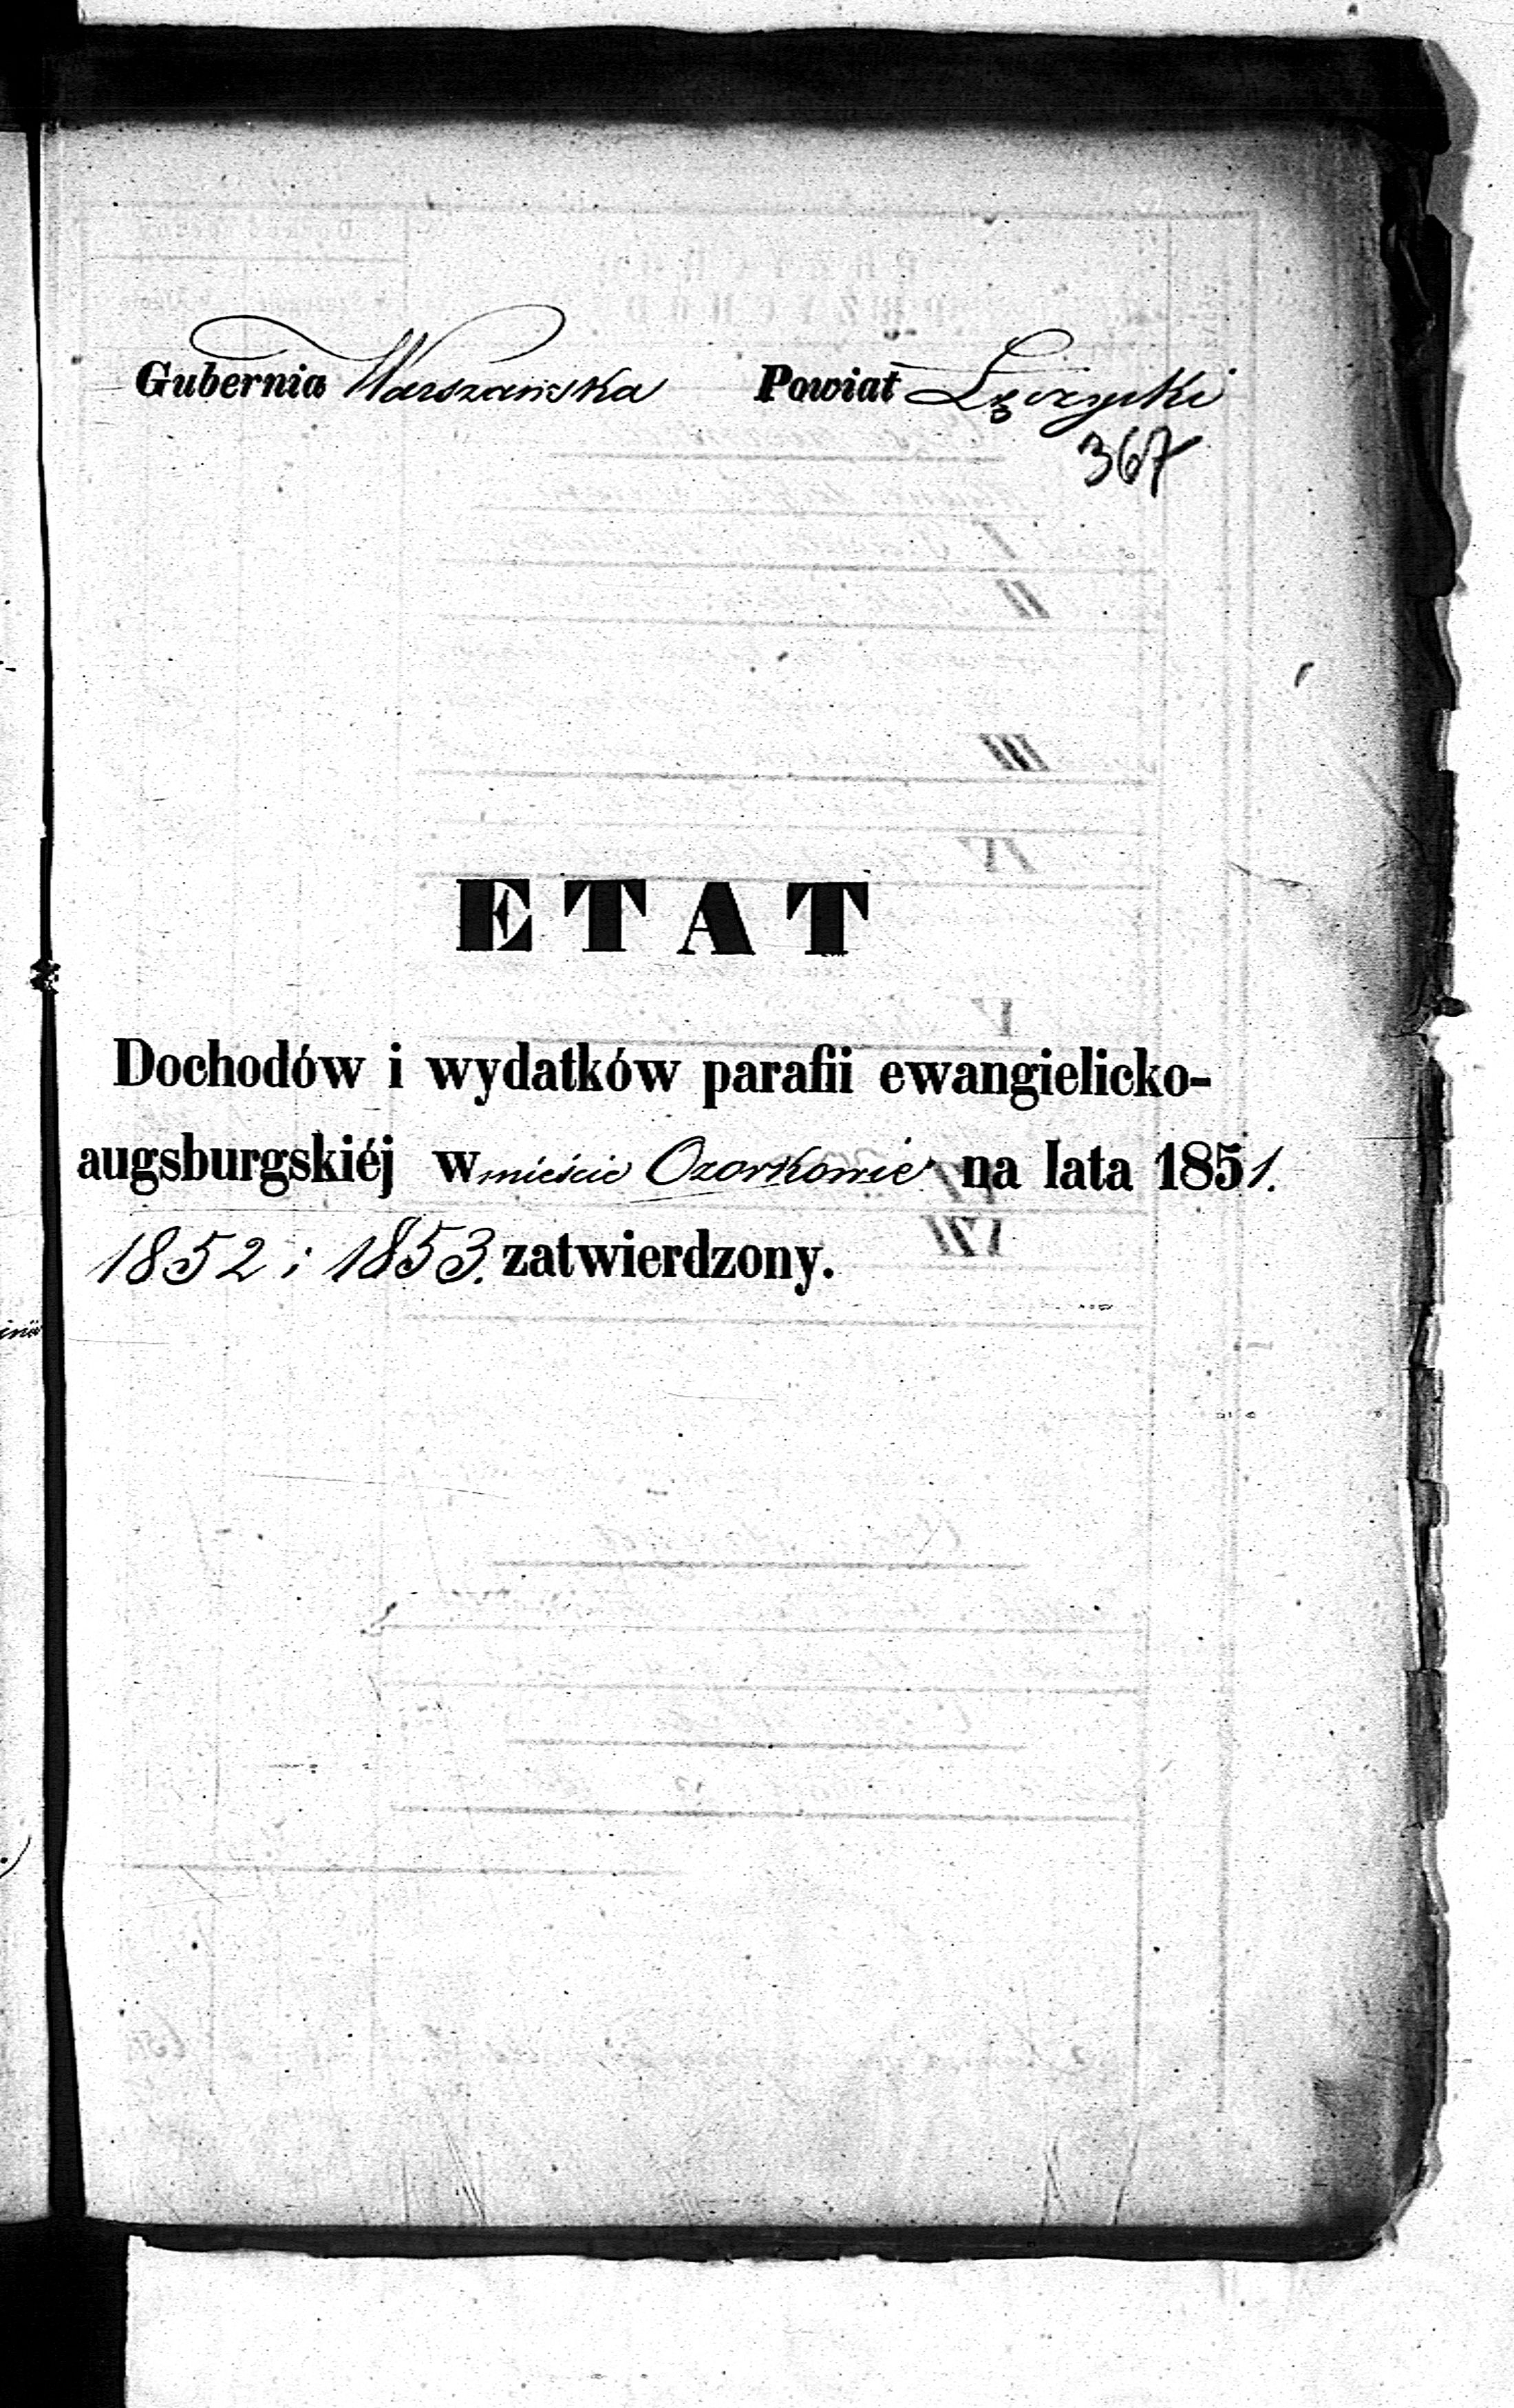 Gubernia Warszawska Powiat Łęczycki
367
ETAT
Dochodów i wydatków parafii ewangielicko-
augsburgskiéj w mieście Ozorkowie na lata 1851.
1852 i 1853. zatwierdzony.